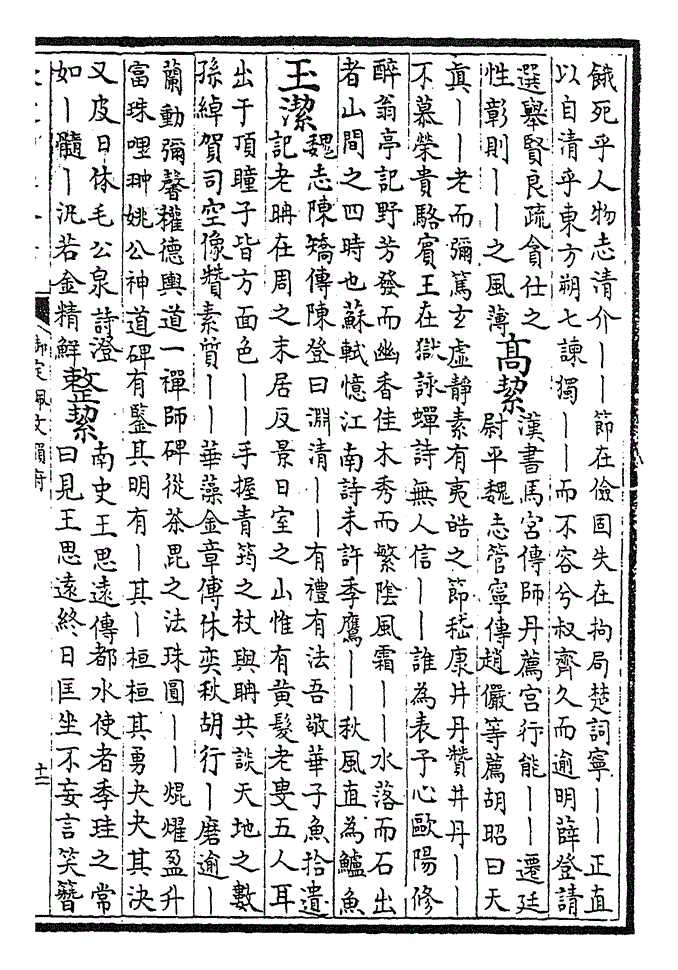 餓死乎人物志清介丨丨節在儉固失在拘局楚詞寧丨丨正直
以自清乎東方朔七諫獨丨丨而不容兮叔齊久而逾明薛登請
選舉賢良疏貪仕之
性彰則丨丨之風薄
高絜
漢書馬宮傳師丹薦宮行能丨丨遷廷
尉平魏志管寧傳趙儼等薦胡昭曰天
真丨丨老而彌篤玄虛静素有夷皓之節嵇康井丹贊井丹丨丨
不慕榮貴駱賓王在獄詠蟬詩無人信丨丨誰為表予心歐陽修
醉翁亭記野芳發而幽香佳木秀而繁陰風霜丨丨水落而石出
者山間之四時也蘇軾憶江南詩未許季鷹丨丨秋風直為鱸魚
玉潔
魏志陳矯傳陳登曰淵清丨丨有禮有法吾敬華子魚拾遺
記老聃在周之末居反景日室之山惟有黃髮老叟五人耳
出于頂瞳子皆方面色丨丨手握青筠之杖與聃共談天地之數
孫綽賀司空像贊素質丨丨華藻金章傅休奕秋胡行丨磨逾丨
蘭動彌馨權德輿道一禪師碑從荼毘之法珠圓丨丨焜燿盈升
富珠哩翀姚公神道碑有鑒其明有丨其丨桓桓其勇夬夬其決
又皮日休毛公泉詩澄
如丨髓丨泚若金精鮮
整絜
南史王思遠傳都水使者季珪之常
曰見王思遠終日匡坐不妄言笑簪
御定佩文韻府
十二